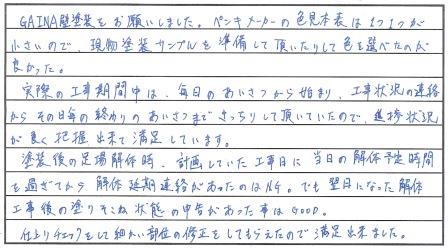 GAINA壁塗装をお願いしました。ペンキメーカーの色見本表は1つ1つが
小さいので、現物塗装サンプルを準備して頂いたりして色を選べたのが
良かった。
実際の工事期間中は、毎日のあいさつから始まり、工事状況の連絡
からその日毎の終わりのあいさつまできっちりして頂いていたので、進捗状況
が良く把握出来て満足しています。
塗装後の足場解体時、計画していた工事日に当日の解体予定時間
を過ぎてから解体延期連絡があったのはNG。でも翌日になった解体
工事後の塗りそこね状態の申告があった事はGOOD。
仕上りチェックをして細かい部位の修正をしてもらえたので満足出来ました。